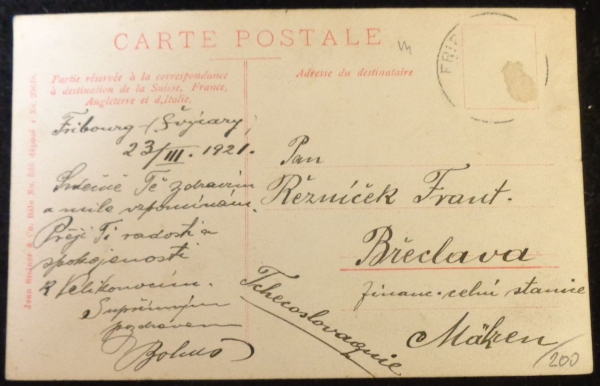 CARTE POSTALE
Partie réservée à la correspondance
à destination de la Suisse, France,
Angleterre et d'Italie.
Adresse du destinataire
FRIB
Fribourg - (Švýcary)
23/III. 1921.
Srdečně Tě zdravím
a mile vzpomínám.
Přeji Ti radosti a
spokojenosti
k Velikonocím.
S upřímným
pozdravem
Bohuš
Pan
Řezníček Frant.
Břeclava
financ. celní stanice
Mähren
Tchecoslovaquie
/200
Jean Steiner & Co. Bâle